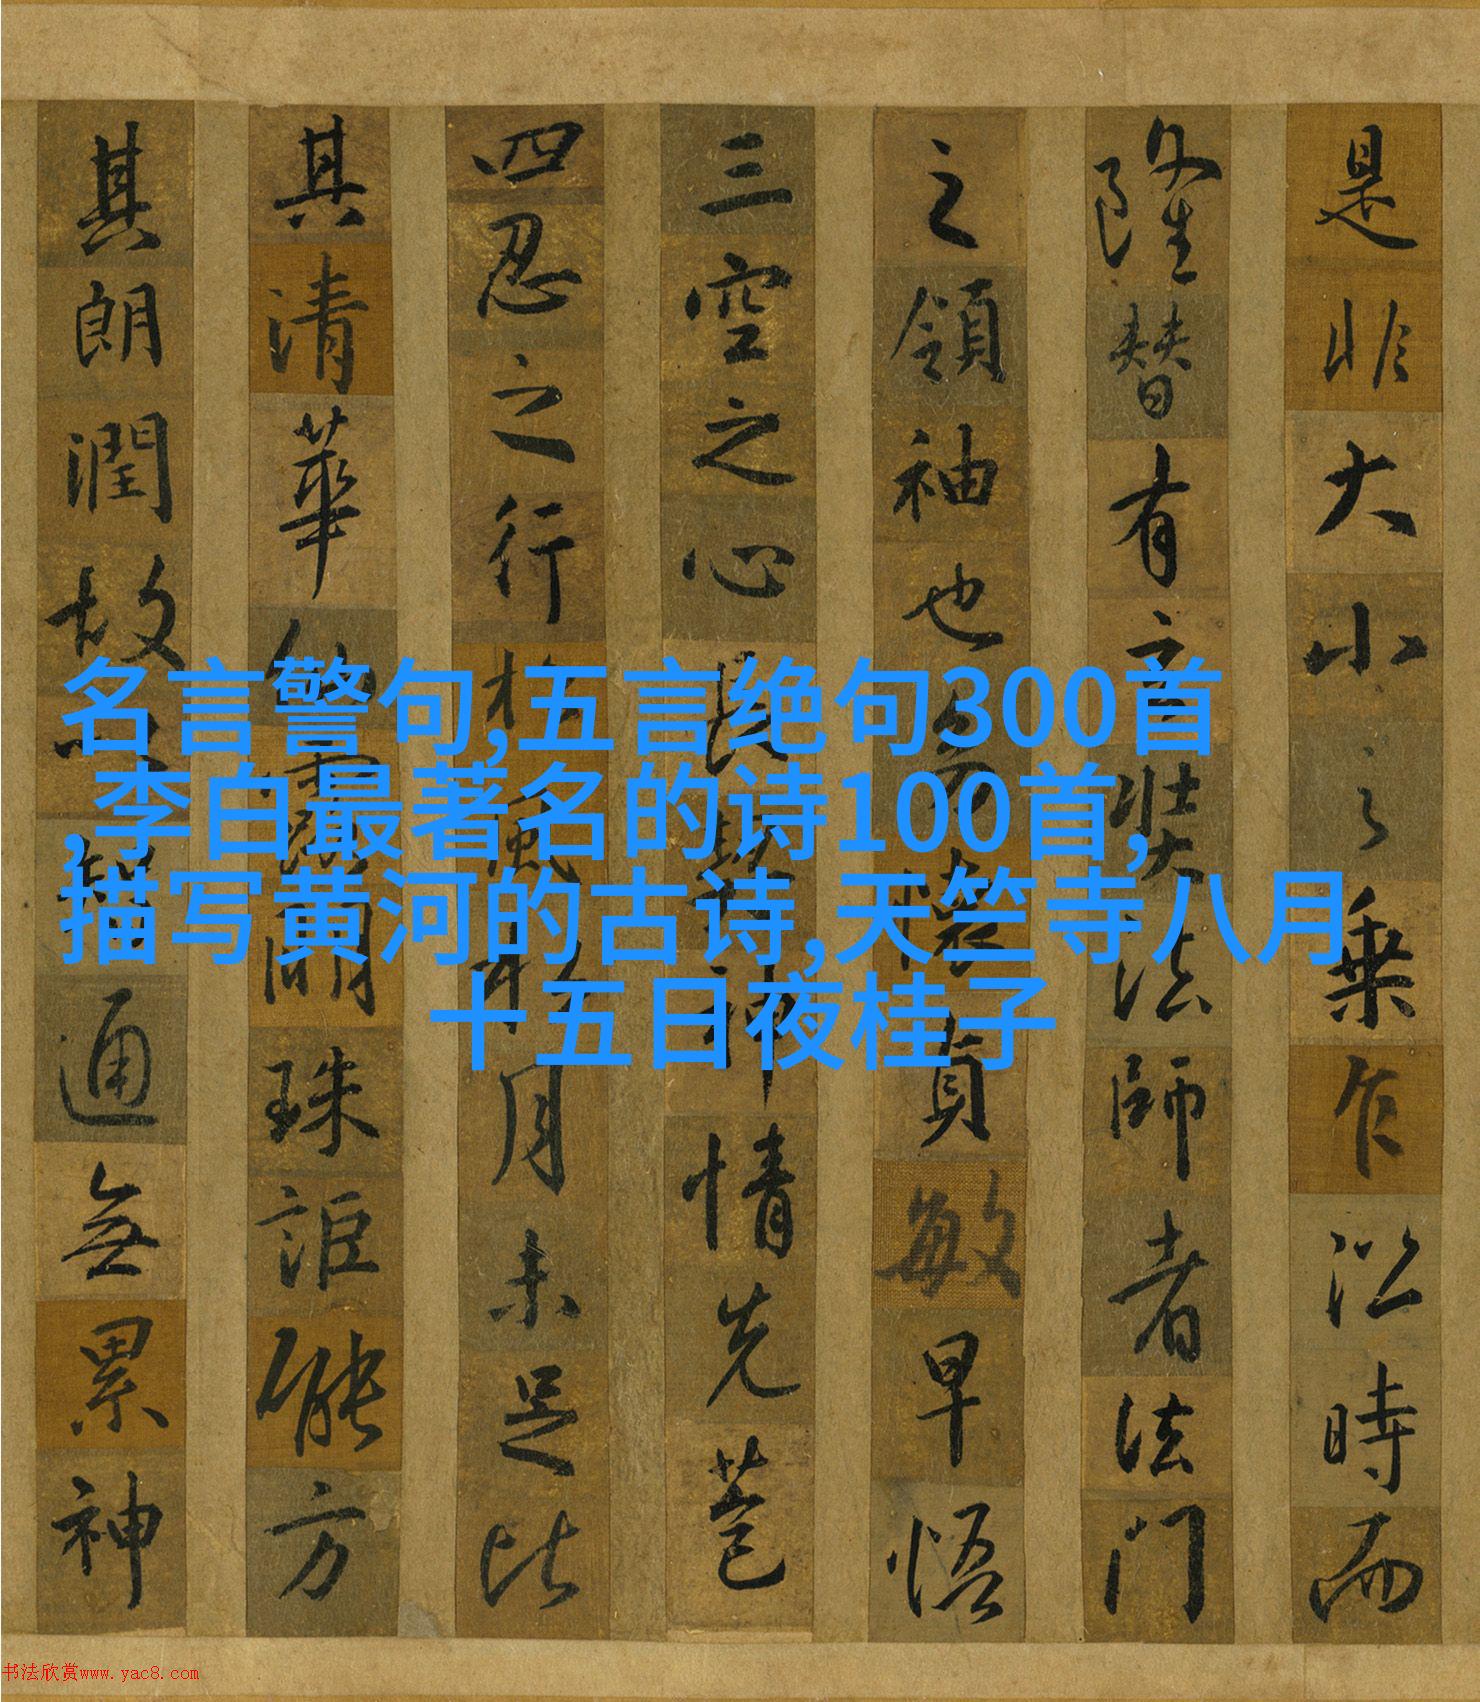 是非大小之乘乍沿時而
隆替有玄奘法師者法門
之領袖也幼懷貞敏早悟
三空之心長契神情先苞
四忍之行松風水月未足比
其清華仙露明珠詎能方
其朗潤故以智通無累神
名言警句,五言绝句300首
,李白最著名的诗100首,
描写黄河的古诗,天竺寺八月
十五日夜桂子
书法欣赏www.yac8.com